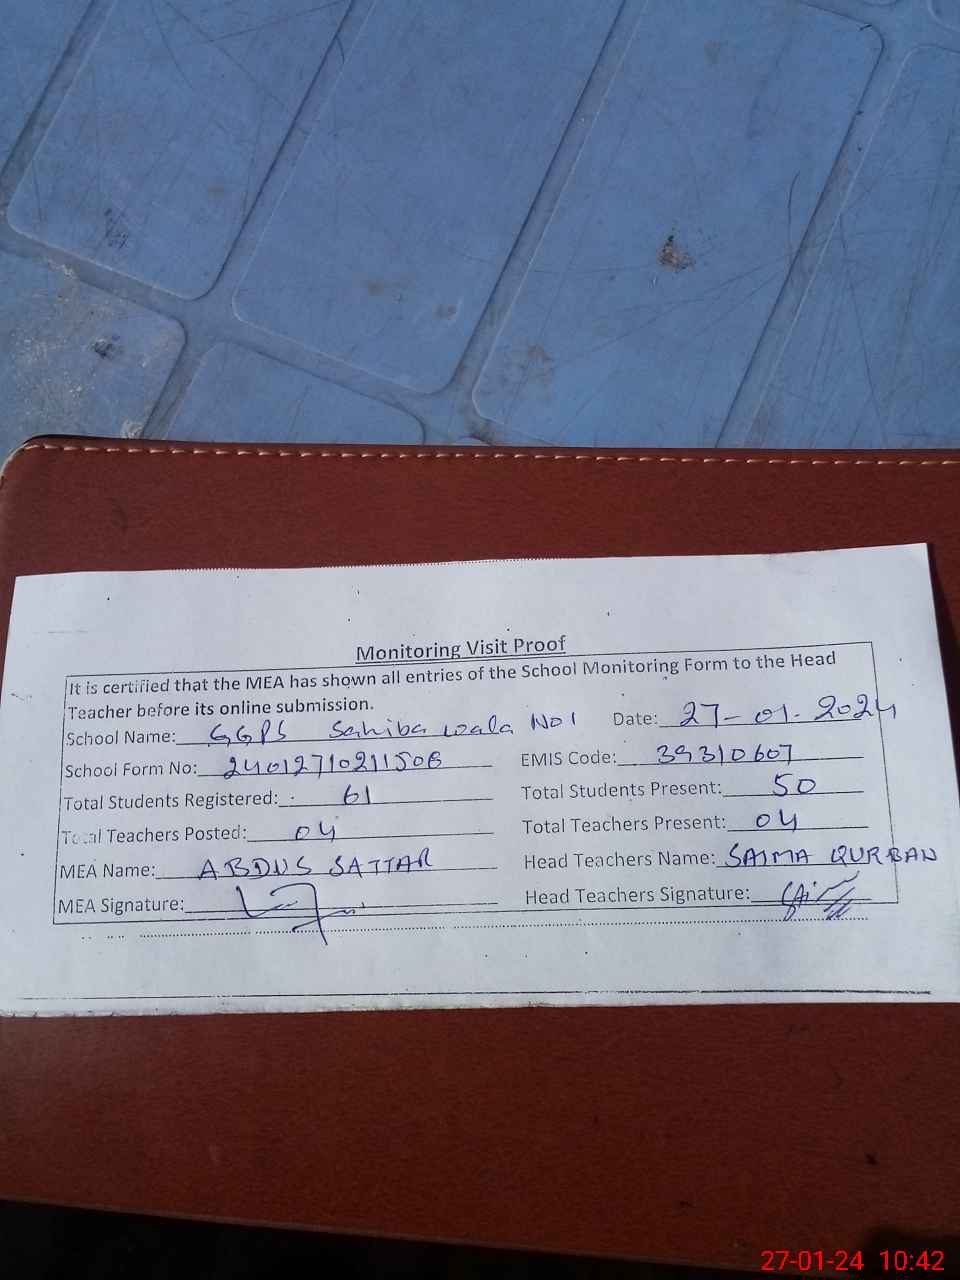 Monitoring Visit Proof
It is certified that the MEA has shown all entries of the School Monitoring Form to the Head
Teacher before its online submission.
School Name: GGPS Sahiba wala No 1 Date: 27-01-2024
School Form No: 24012710211506 EMIS Code: 39310607
Total Students Registered: 61 Total Students Present: 50
Total Teachers Posted: 04 Total Teachers Present: 04
MEA Name: ABDUS SATTAR Head Teachers Name: SAIMA QURBAN
MEA Signature: Head Teachers Signature:
27-01-24 10:42